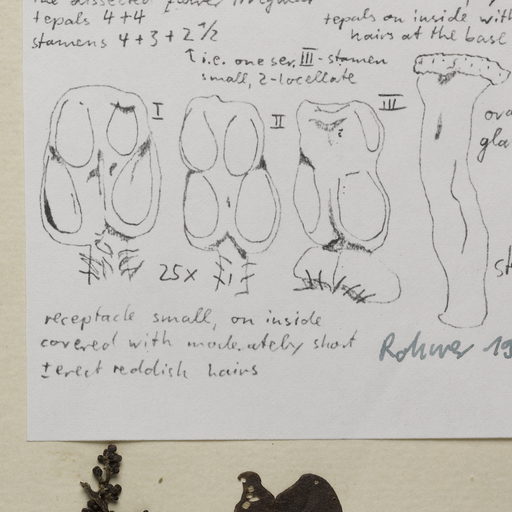 the dissected flower irregular
tepals 4+4
stamens 4+3+2 1/2
↑ i.e. one ser. III-stamen
small, 2-locellate
tepals on inside with
hairs at the base
I
II
III
ova
gla
25x
st
receptacle small, on inside
covered with moderately short
± erect reddish hairs
Rohwer 19